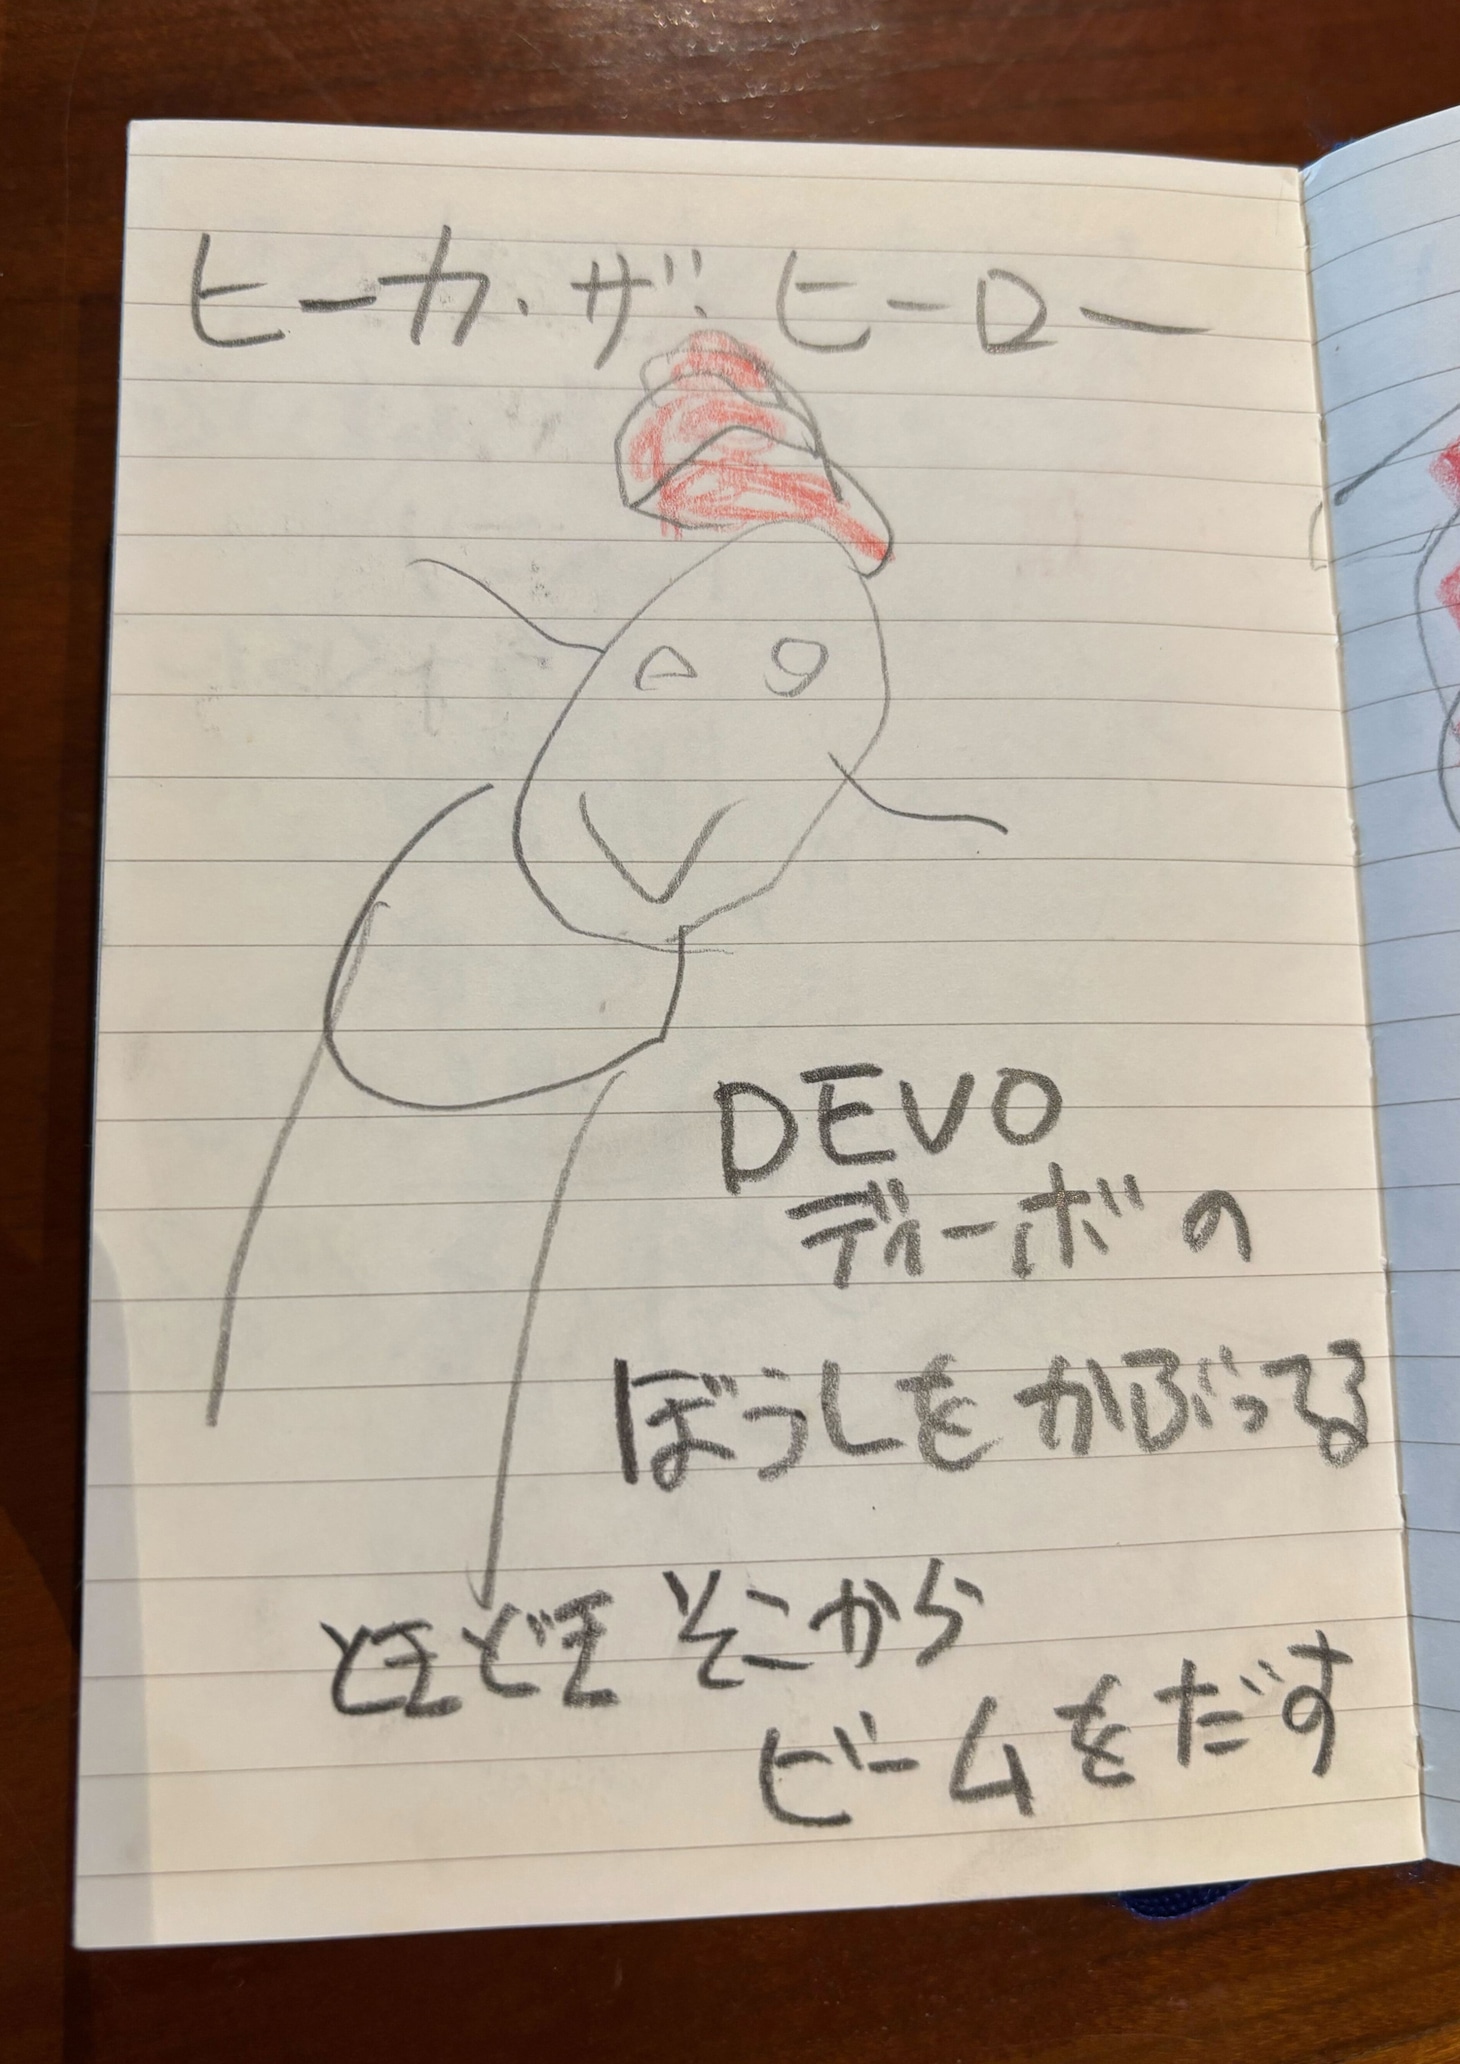 ヒーカ・ザ・ヒーロー
DEVO
ディーボの
ぼうしをかぶってる
ときどきそこから
ビームをだす